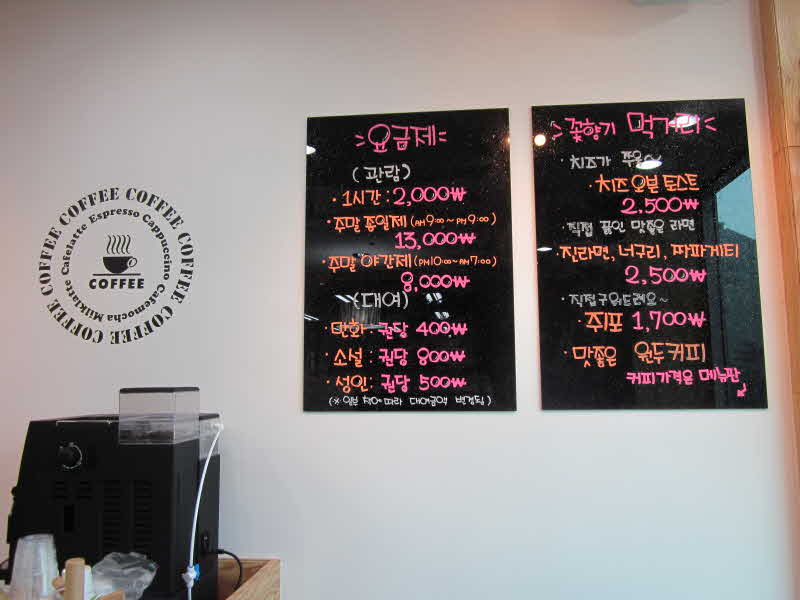 COFFEE COFFEE COFFEE COFFEE COFFEE COFFEE
Espresso Cappuccino Cafemocha Milklatte Cafelatte
COFFEE
요금제
(관람)
· 1시간 : 2,000₩
· 주말 종일제 (AM 9:00 ~ PM 9:00)
13,000₩
· 주말 야간제 (PM 10:00 ~ AM 7:00)
8,000₩
(대여)
· 만화 : 권당 400₩
· 소설 : 권당 800₩
· 성인 : 권당 500₩
(※ 일부 책에 따라 대여금액 변경됨)
꽃향기 먹거리
· 치즈가 쭈욱~
치즈 오븐 토스트
2,500₩
· 직접 끓인 맛좋은 라면
· 진라면, 너구리, 짜파게티
2,500₩
· 직접 구워드려요~
쥐포 1,700₩
· 맛좋은 원두커피
커피가격은 메뉴판